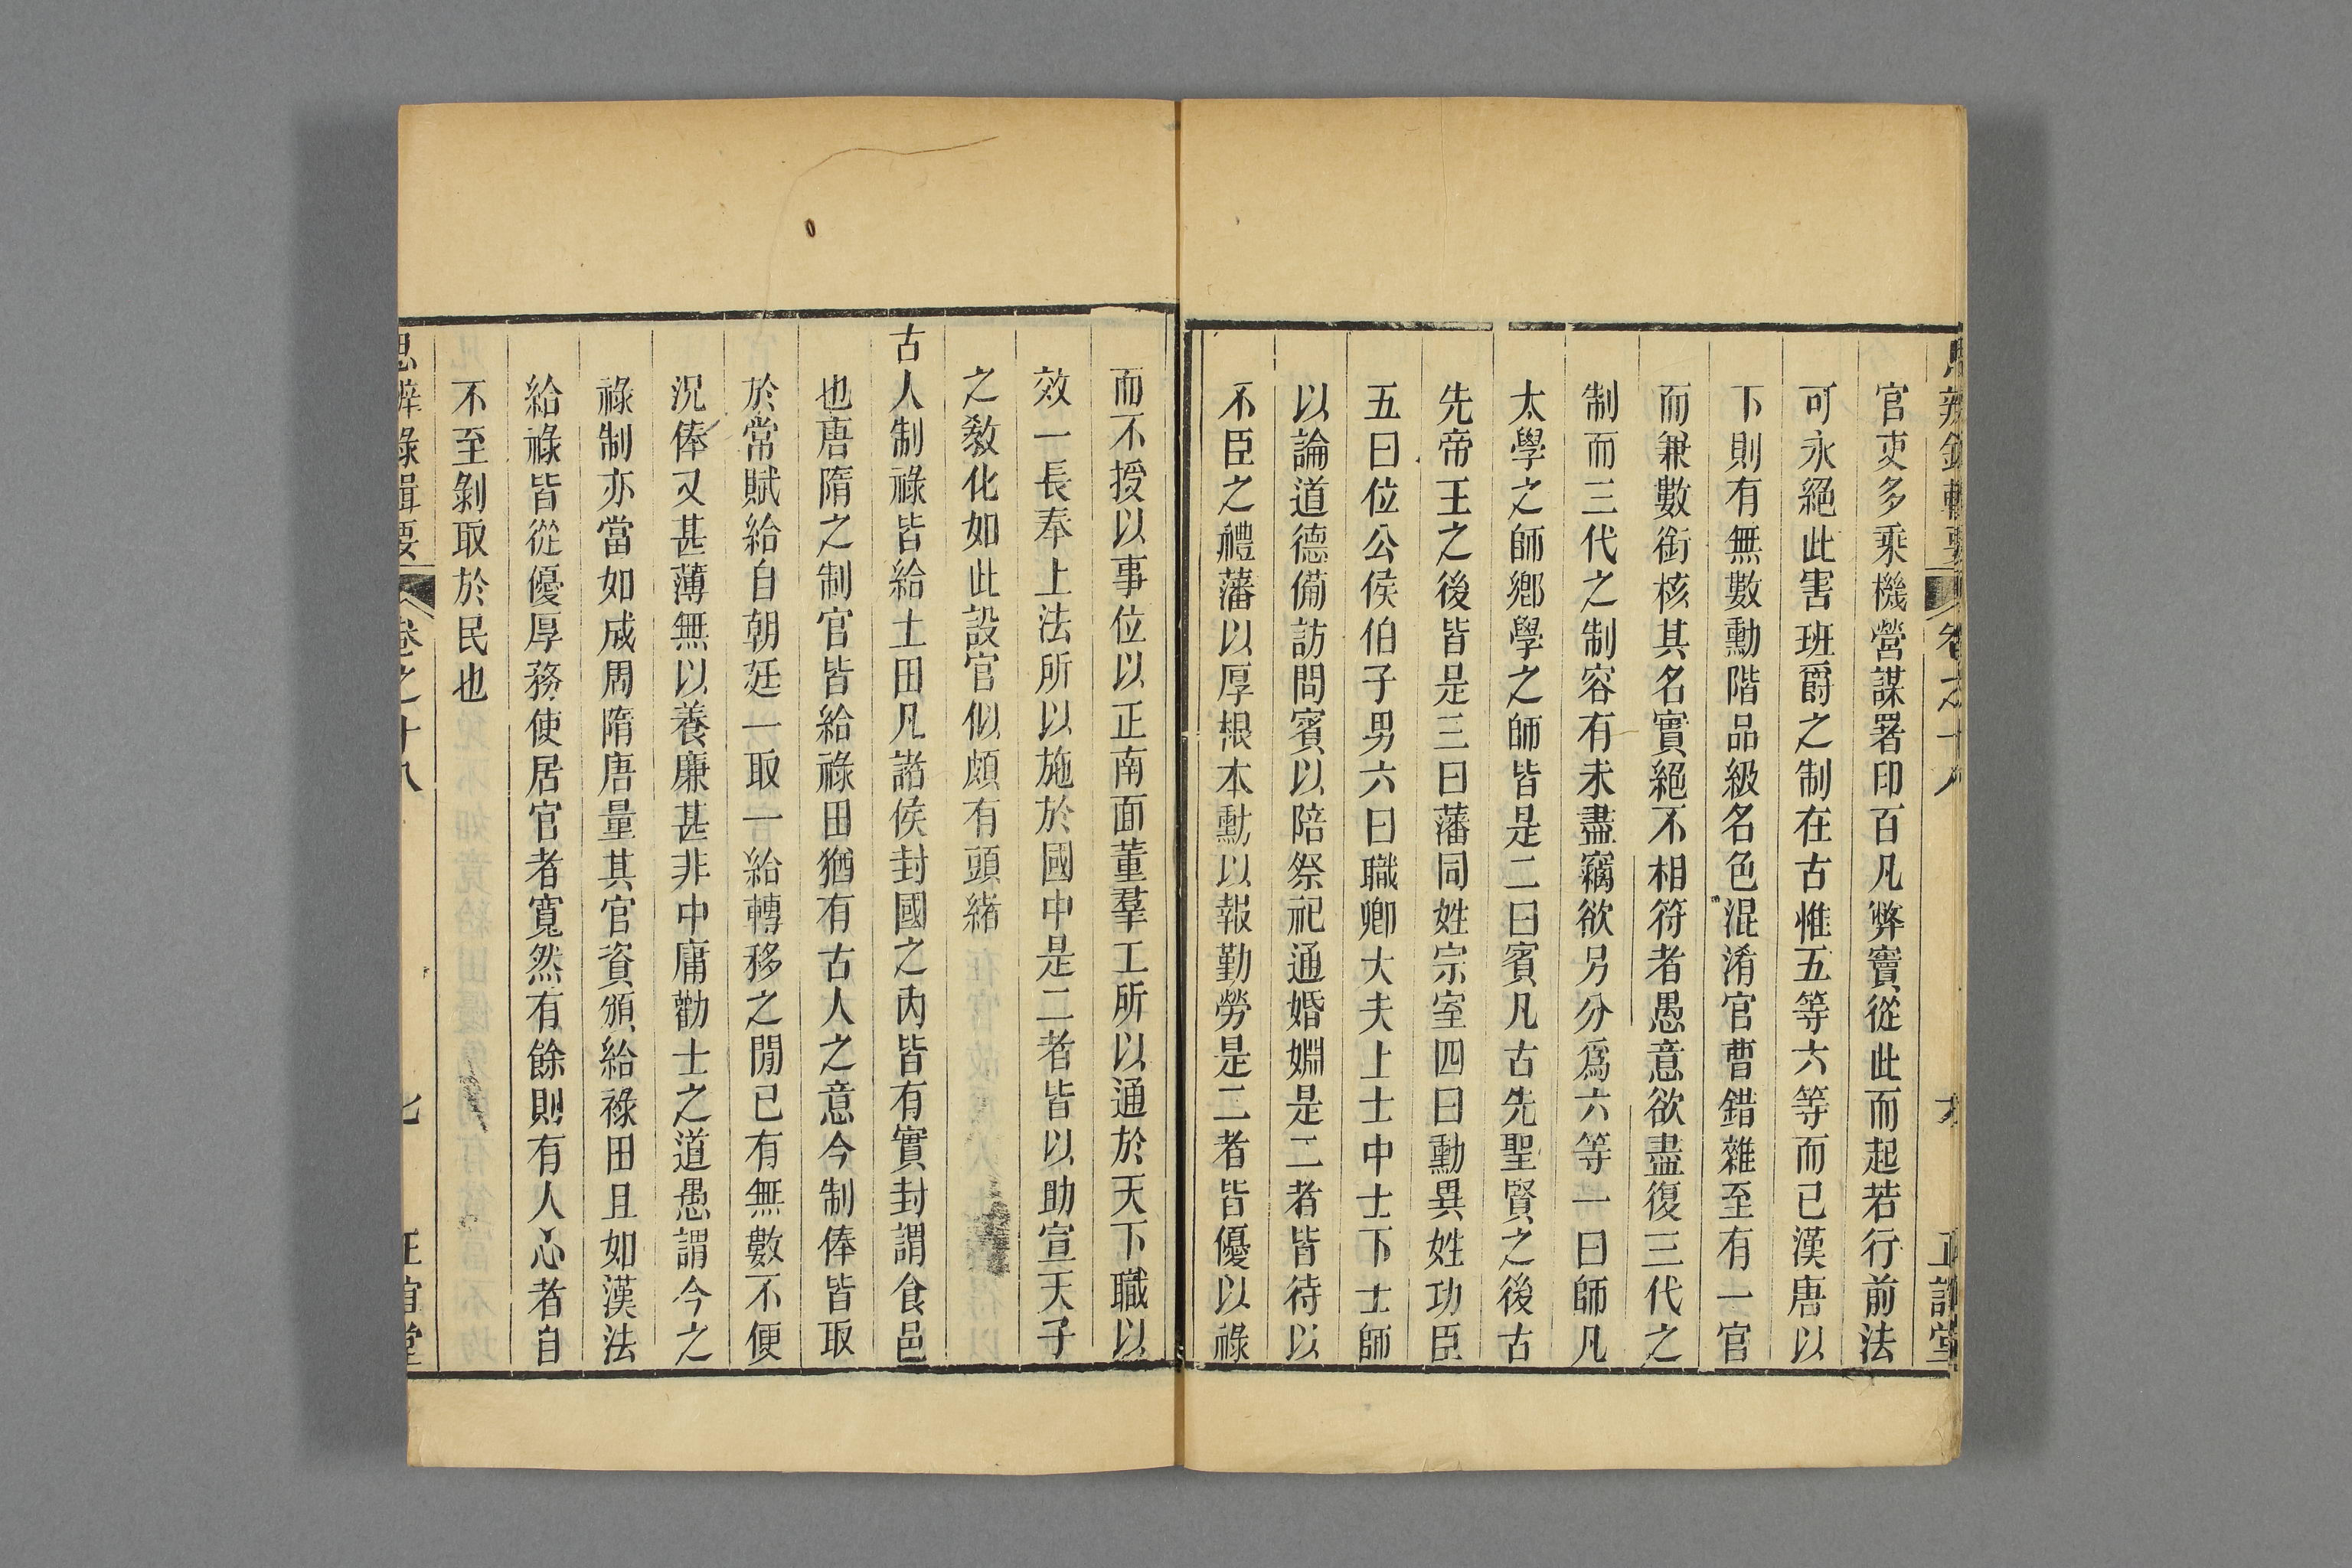 思辨錄輯要 卷之十八 六 正誼堂
官吏多乘機營謀署印百凡弊竇從此而起若行前法
可永絕此害班爵之制在古惟五等六等而已漢唐以
下則有無數勳階品級名色混淆官曹錯雜至有一官
而兼數銜核其名實絕不相符者愚意欲盡復三代之
制而三代之制容有未盡竊欲另分爲六等一曰師凡
太學之師鄕學之師皆是二曰賓凡古先聖賢之後古
先帝王之後皆是三曰藩同姓宗室四曰勳異姓功臣
五曰位公侯伯子男六曰職卿大夫上士中士下士師
以論道德備訪問賓以陪祭祀通婚姻是二者皆待以
不臣之禮藩以厚根本勳以報勤勞是二者皆優以祿
而不授以事位以正南面董羣工所以通於天下職以
效一長奉上法所以施於國中是二者皆以助宣天子
之敎化如此設官似頗有頭緒
古人制祿皆給土田凡諸侯封國之內皆有實封謂食邑
也唐隋之制官皆給祿田猶有古人之意今制俸皆取
於常賦給自朝廷一取一給轉移之閒已有無數不便
況俸又甚薄無以養廉甚非中庸勸士之道愚謂今之
祿制亦當如成周隋唐量其官資頒給祿田且如漢法
給祿皆從優厚務使居官者寬然有餘則有人心者自
不至剝取於民也
思辨錄輯要 卷之十八 七 正誼堂